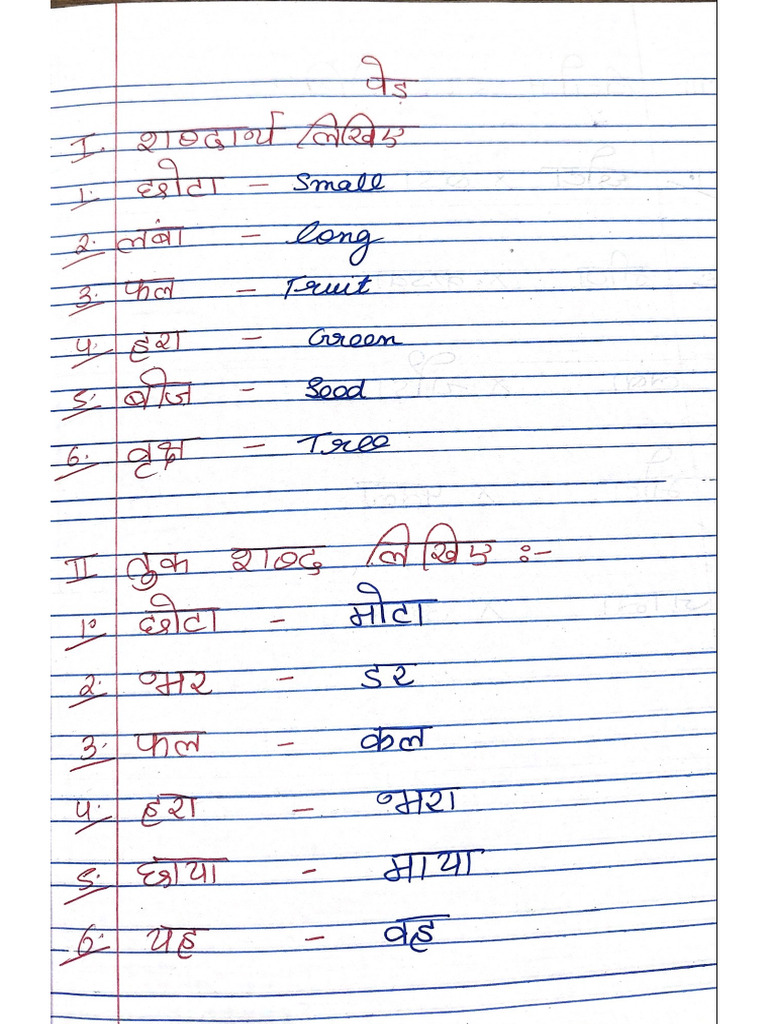 पेड़
I. शब्दार्थ लिखिए
1. छोटा - Small
2. लंबा - long
3. फल - Fruit
4. हरा - Green
5. बीज - Seed
6. वृक्ष - Tree
II तुक शब्द लिखिए :-
1. छोटा - मोटा
2. भर - डर
3. फल - कल
4. हरा - भरा
5. छाया - माया
6. यह - वह